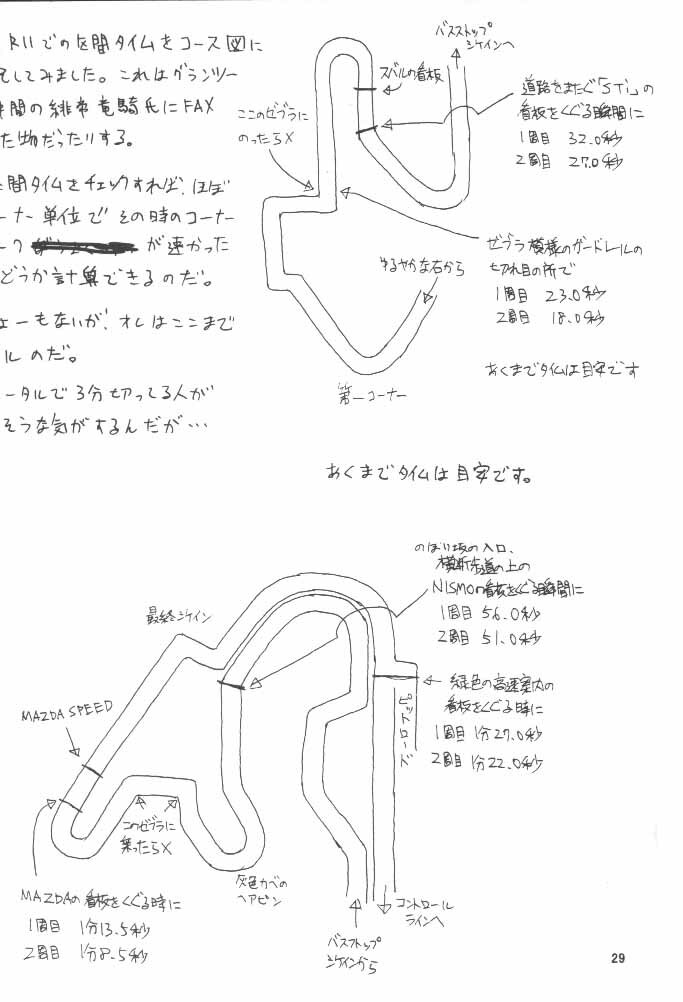 R11での区間タイムをコース図に
してみました。これはグランツー
仲間の緋帝竜騎氏にFAX
た物だったりする。
間タイムをチェックすれば、ほぼ
ーナー単位でその時のコーナー
ーク が速かった
どうか計算できるのだ。
ョーもないが、オレはここまで
ルのだ。
ータルで3分切ってる人が
そうな気がするんだが…
バスストップ
シケインへ
スバルの看板
ここのゼブラに
のったら×
道路をまたぐ「STi」の
看板をくぐる瞬間に
1周目 32.0秒
2周目 27.0秒
ゼブラ模様のガードレールの
切れ目の所で
1周目 23.0秒
2周目 18.0秒
ゆるやかな右から
第一コーナー
あくまでタイムは目安です
あくまでタイムは目安です。
のぼり坂の入口、
横断歩道の上の
NISMOの看板をくぐる瞬間に
1周目 56.0秒
2周目 51.0秒
最終シケイン
緑色の高速案内の
看板をくぐる時に
1周目 1分27.0秒
2周目 1分22.0秒
ピットロード
MAZDA SPEED
このゼブラに
乗ったら×
灰色カベの
ヘアピン
MAZDAの看板をくぐる時に
1周目 1分13.5秒
2周目 1分8.5秒
バスストップ
シケインから
コントロール
ラインへ
29